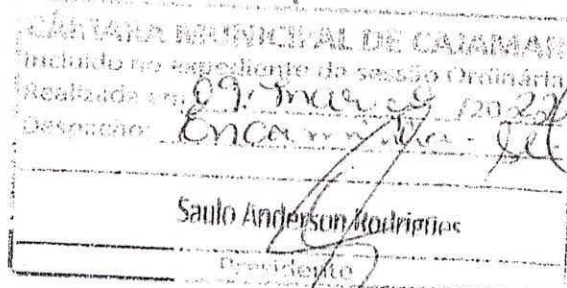 CÂMARA MUNICIPAL DE CAJAMAR
Incluído no expediente da sessão Ordinária
Realizada em 09. março /2022
Despacho: Encaminha-se
Saulo Anderson Rodrigues
Presidente